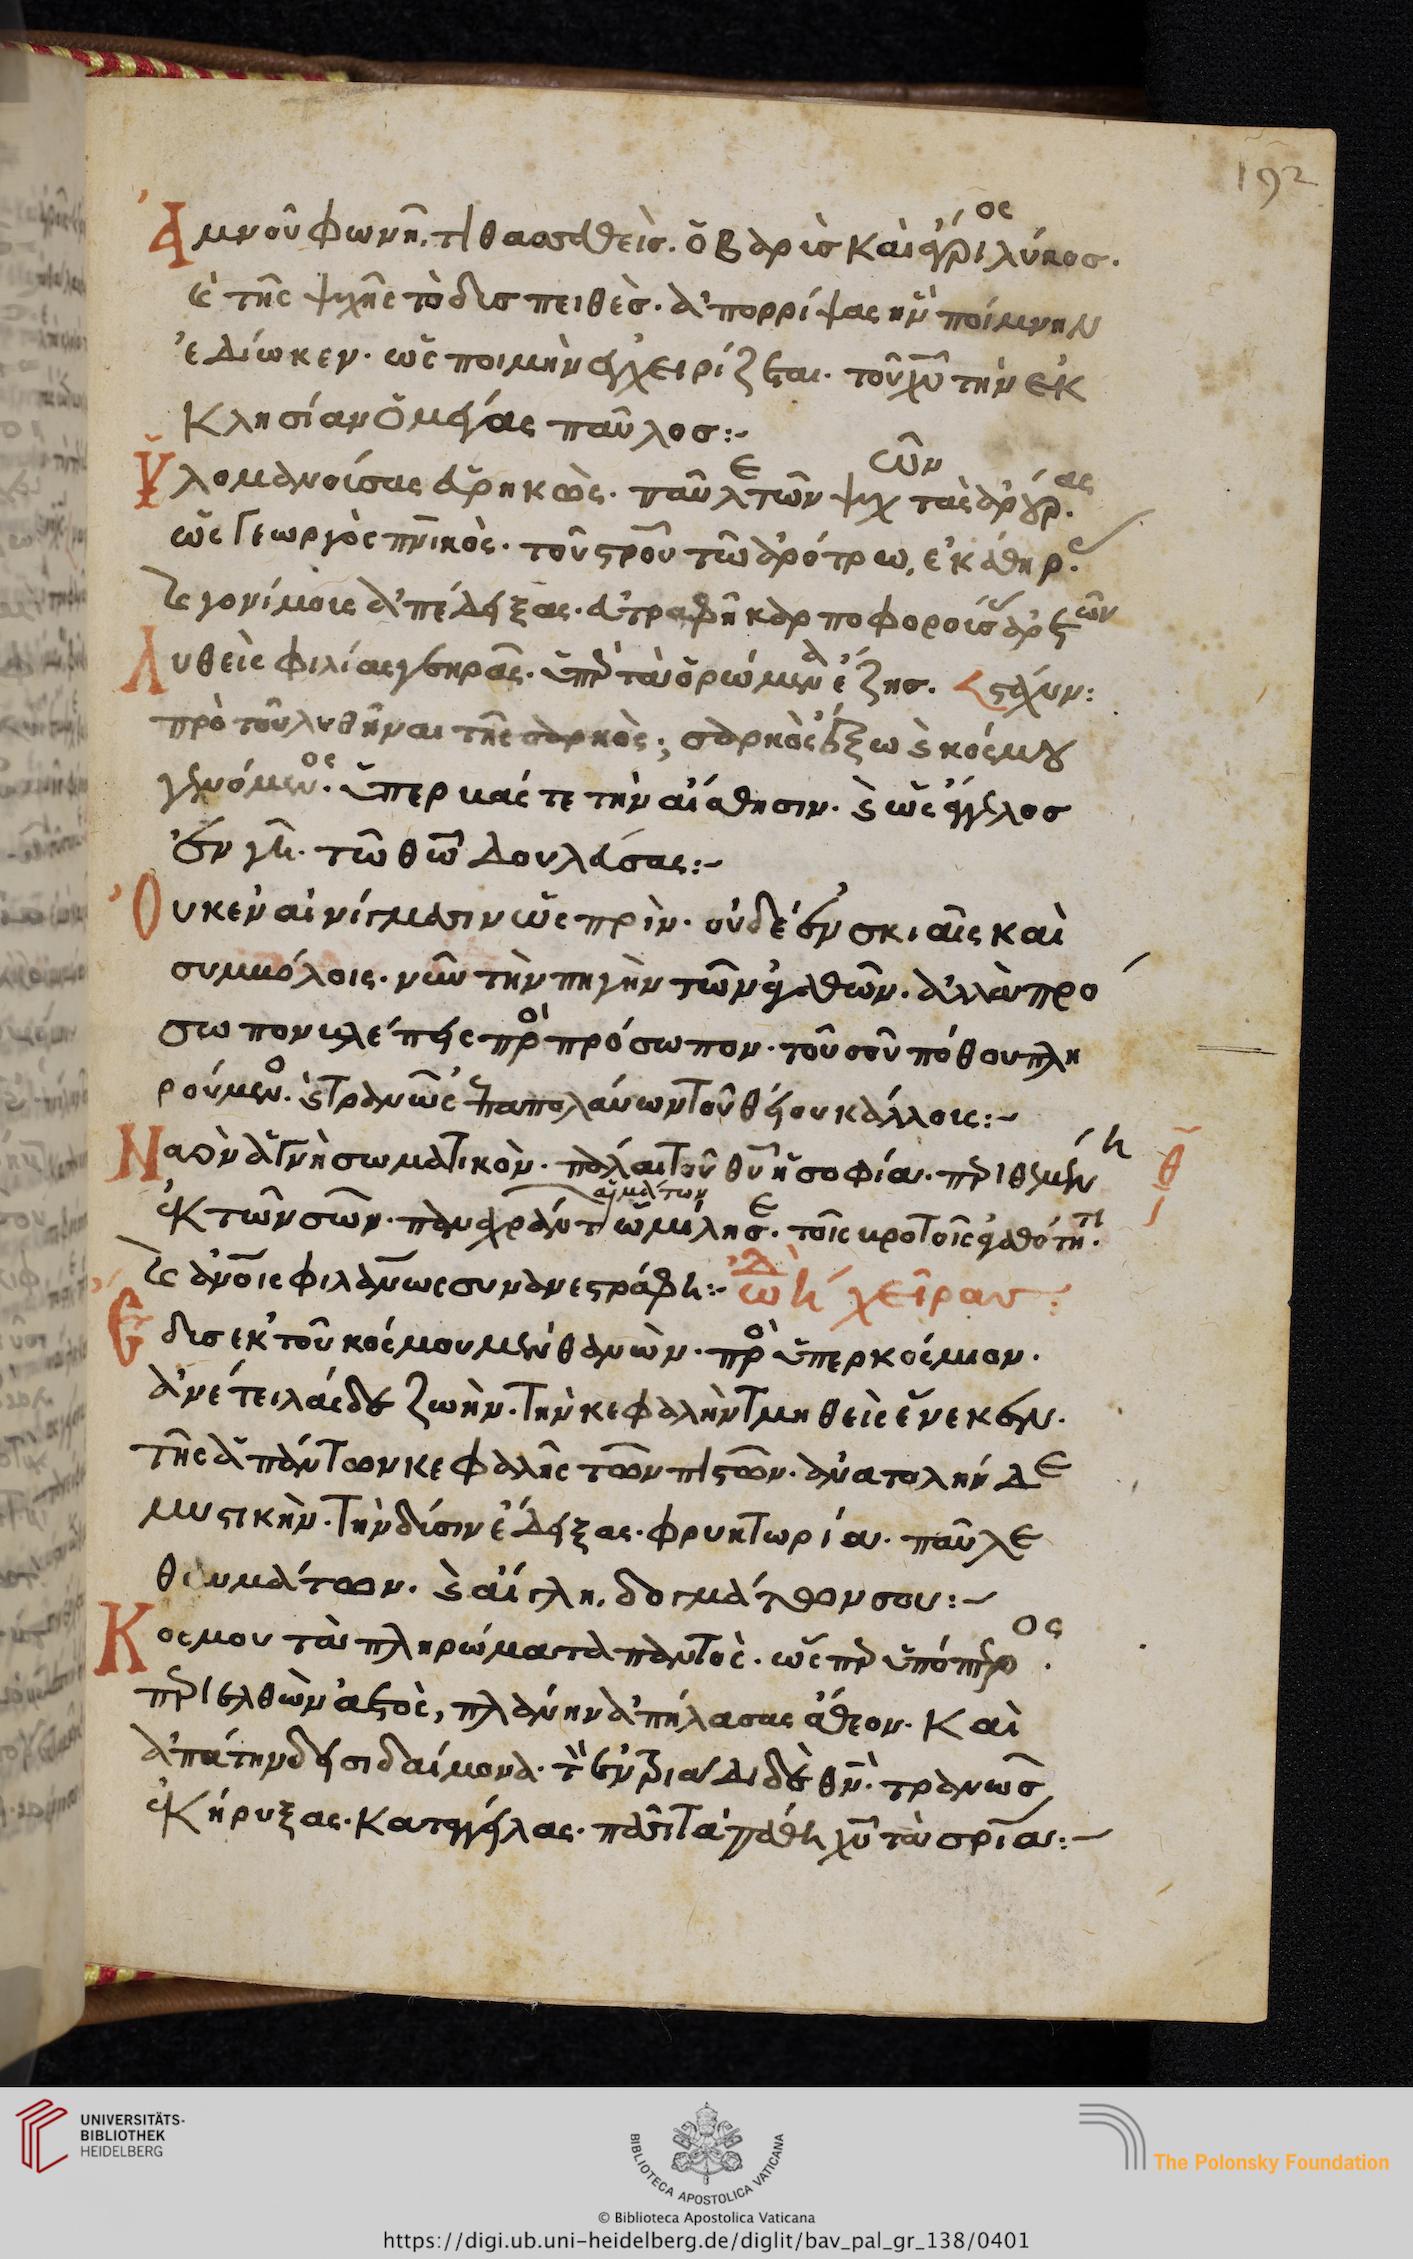 192
Ἀμνοῦ φωνῇ, τιθασσευθεὶς. ὁ βαρὺς καὶ ἄγριος λύκος.
ἐκ τῆς ψυχῆς τὸ δυσπειθὲς. ἀπορρίψας ἣν ποίμνην
ἐδίωκεν. ὡς ποιμὴν ἐγχειρίζεται. τοῦ χυ τὴν ἐκ
κλησίαν ὁ μέγας παῦλος:-
Ὑλομανούσας εὑρηκὼς. παῦλε τῶν ψυχῶν τὰς ἀρούρας.
ὡς γεωργὸς πνικὸς. τοῦ στροῦ τῷ ἀρότρω, ἐκάθηρας
καὶ γονίμοις ἀπέδειξας. καρποφορούσας ἀρετῶν
Λυθεὶς φιλίας γεηρᾶς. ὑπὲρ τὰ ὁρώμενα ἔζης. στάχυν:
πρὸ τοῦ λυθῆναι τῆς σαρκὸς; σαρκὸς ἔξω καὶ κόσμου
γενόμενος. ὑπερβάς τε τὴν αἴσθησιν. καὶ ὡς ἄγγελος
ἐν γῆ. τῶ θῶ δουλεύσας:-
Οὐκ ἐν αἰνίγμασιν ὡς πρὶν. οὐδὲ ἐν σκιαῖς καὶ
συμβόλοις. νῦν τὴν πηγὴν τῶν ἀγαθῶν. ἀλλὰ πρό
σωπον βλέπεις πρὸς πρόσωπον. τοῦ σοῦ πόθου πλη
ρούμενος. καὶ τρανῶς ἀπολαύων τοῦ θείου κάλλους:-
Ναὸν ἁγνὴ σωματικὸν. πάλαι τοῦ θυ ἡ σοφία. περιθεμένη θ
ἐκ τῶν σῶν. παναχράντων αἱμάτων τοῖς βροτοῖς ἀγαθότητι.
καὶ ἀνοις φιλανως συνανεστράφη:- ὠδὴ χεῖρας:
Ἔδυς ἐκ τοῦ κόσμου μὲν θανὼν. πρὸς ὑπερκόσμιον.
ἀνέτειλας δὲ ζωὴν. τὴν κεφαλὴν τμηθεὶς ἕνεκεν.
τῆς ἁπάντων κεφαλῆς τῶν πιστῶν. ἀνατολὴν δὲ
μυστικὴν. τὴν δύσιν ἔδειξας. φρυκτωρία. παῦλε
θαυμάτων. καὶ αἴγλη, δογμάτων σου:-
Κόσμου τὰ πληρώματα παντὸς. ὡς περ ὑπόπτερος.
περιελθὼν ἀετὸς, πλάνην ἀπήλασας ἄθεον. καὶ
ἀπάτην δεισιδαίμονα. τὸν ἐν τριάδι δὲ θν. τρανῶς
ἐκήρυξας. καταγγείλας. πᾶσι τὰ πάθη χυ τὰ σρια:-
UNIVERSITÄTS-
BIBLIOTHEK
HEIDELBERG
BIBLIOTECA APOSTOLICA VATICANA
The Polonsky Foundation
© Biblioteca Apostolica Vaticana
https://digi.ub.uni-heidelberg.de/diglit/bav_pal_gr_138/0401